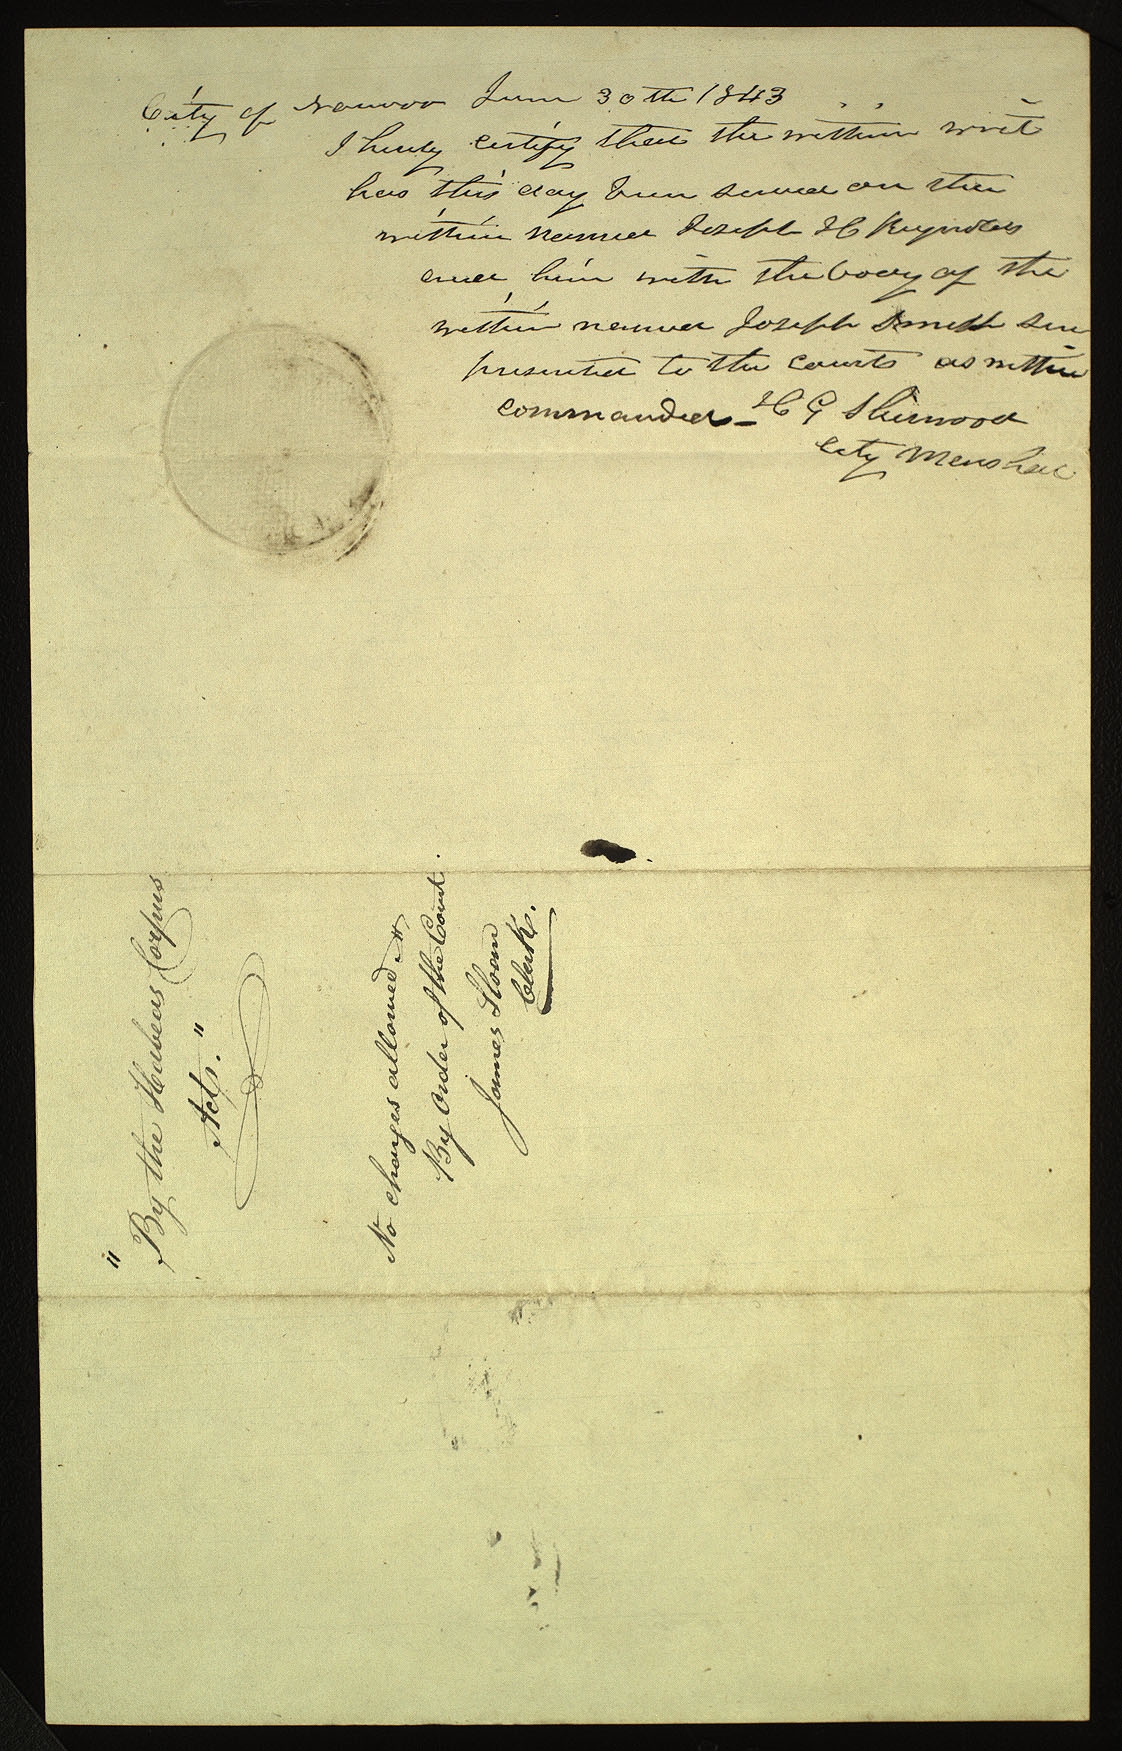 City of Nauvoo June 30th 1843
I hereby certify that the within writ
has this day been served on the
within named Joseph H Reynolds
and him with the body of the
within named Joseph Smith Sen
presented to the courts as within
commanded – H G Sherwood
City Marshal
" By the Habeas Corpus
Acts. "
No charges allowed
By order of the Court.
James Sloan
Clerk.